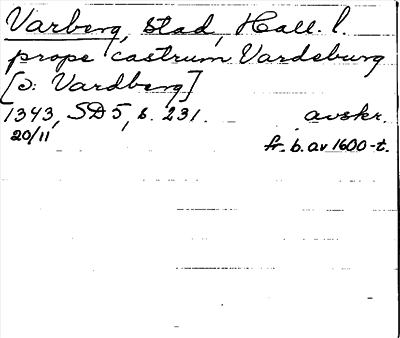 Varberg, stad, Hall. l.
prope castrum Vardeburg
[ɔ: Vardberg]
1343, SD 5, s. 231. avskr.
20/11 fr. b. av 1600-t.